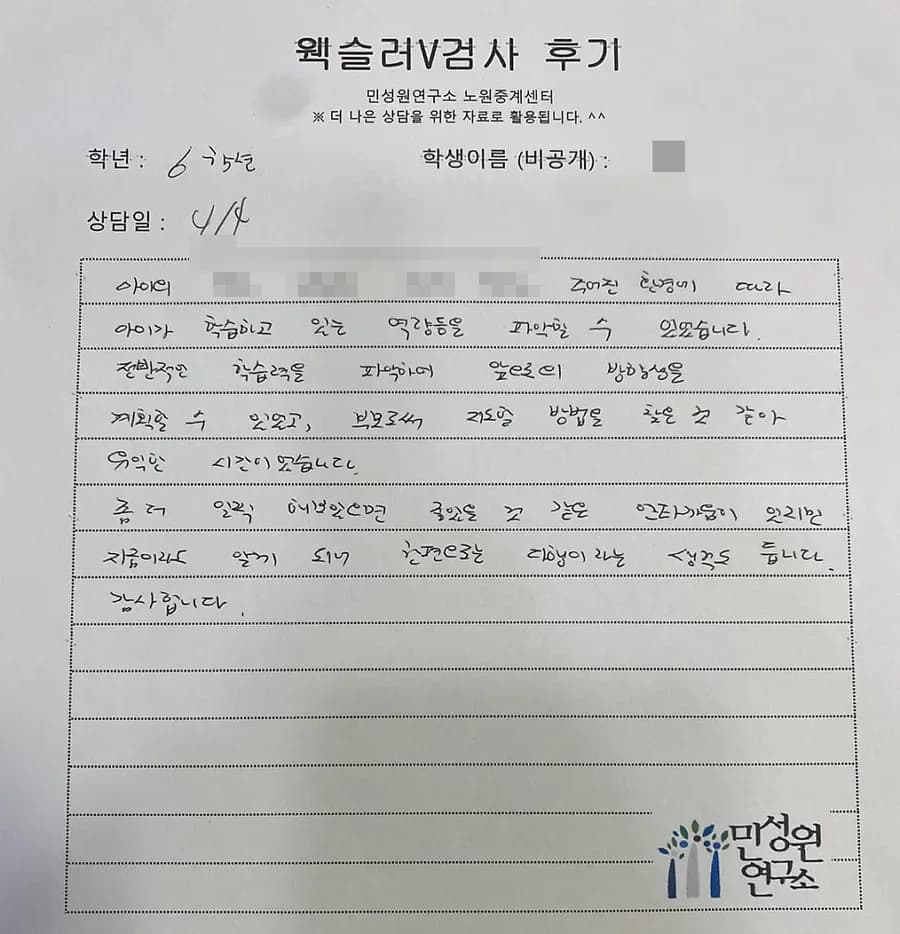 웩슬러V검사 후기
민성원연구소 노원중계센터
※ 더 나은 상담을 위한 자료로 활용됩니다. ^^
학년 : 6학년
학생이름 (비공개) :
상담일 : 4/4
아이의 주어진 환경에 따라
아이가 학습하고 있는 역량등을 파악할 수 있었습니다.
전반적인 학습력을 파악하여 앞으로의 방향성을
계획할 수 있었고, 부모로써 지도할 방법을 찾은 것 같아
유익한 시간이었습니다.
좀 더 일찍 해보았으면 좋았을 것 같은 안타까움이 있지만
지금이라도 알게 되니 한편으로는 다행이라는 생각도 듭니다.
감사합니다.
민성원
연구소